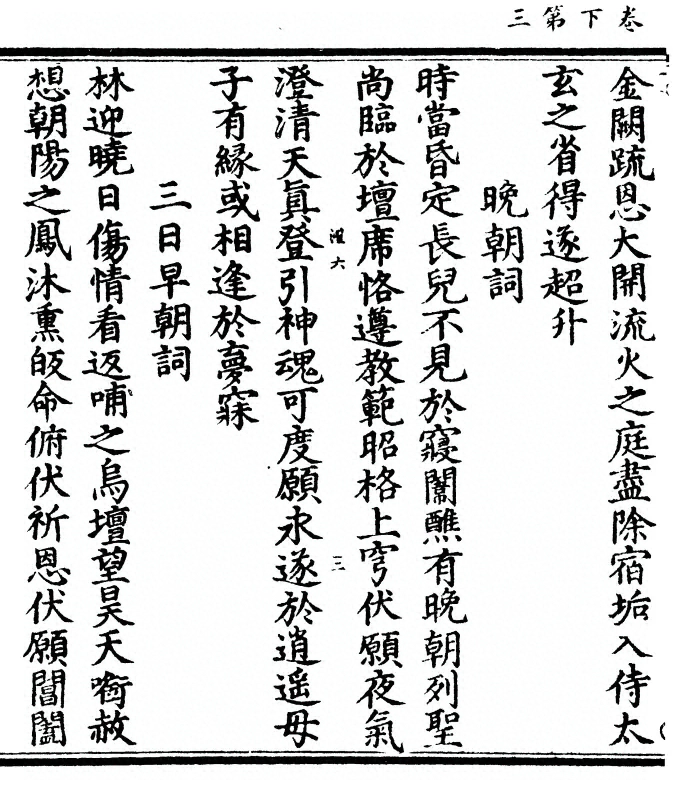 卷下第三
金闕疏恩大開流火之庭盡除宿垢入侍太
玄之省得遂超升
晚朝詞
時當昏定長兒不見於寢闈醮有晚朝列聖
尚臨於壇席恪遵教範昭格上穹伏願夜氣
澄清天真登引神魂可度願永遂於逍遥母
三
子有緣或相逢於夢寐
三日早朝詞
林迎曉日傷情看返哺之烏壇望昊天銜赦
想朝陽之鳳沐熏皈命俯伏祈恩伏願閶闔